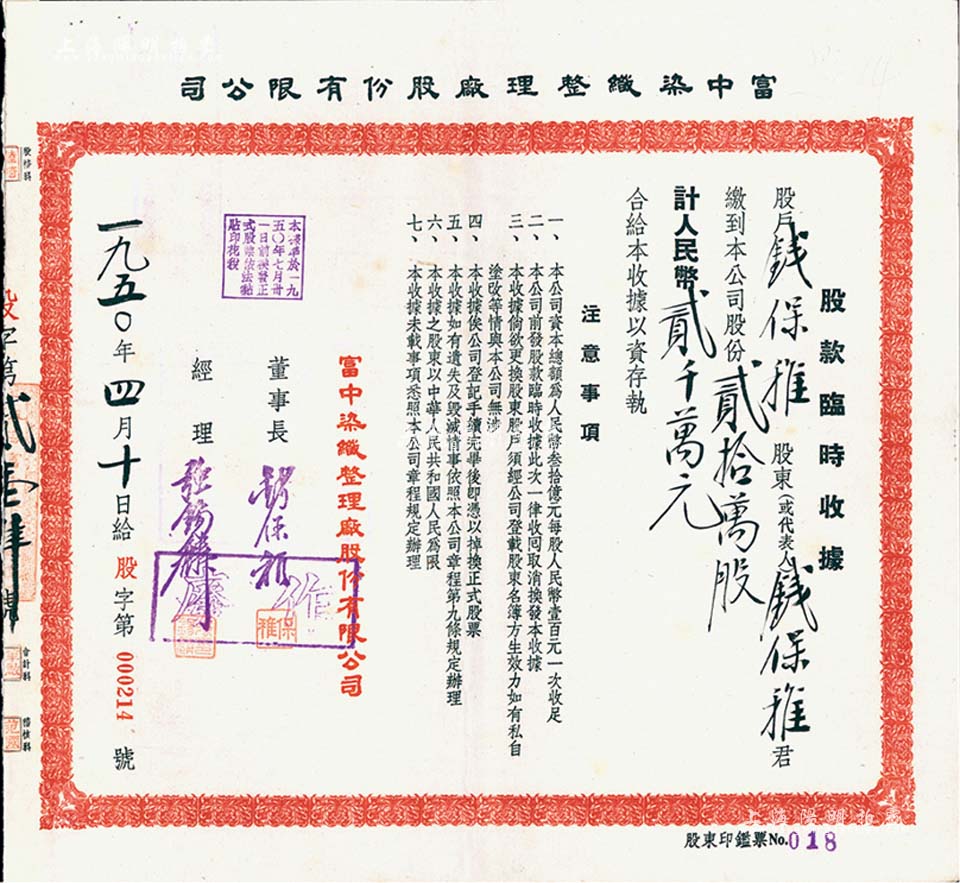 上海陽明拍賣
富中染織整理廠股份有限公司
股款臨時收據
股戶錢保稚 股東(或代表人)錢保稚君
繳到本公司股份貳拾萬股
計人民幣貳千萬元
合給本收據以資存執
注意事項
一、本公司資本總額為人民幣叁拾億元每股人民幣壹百元一次收足
二、本公司前發股款臨時收據此次一律收回取消換發本收據
三、本收據倘欲更換股東股戶須經公司登載股東名簿方生效力如有私自
塗改等情與本公司無涉
四、本收據俟公司登記手續完畢後即憑以掉換正式股票
五、本收據如有遺失及毀滅情事依照本公司章程第九條規定辦理
六、本收據之股東以中華人民共和國人民為限
七、本收據未載事項悉照本公司章程規定辦理
富中染織整理廠股份有限公司
董事長 錢保稚
保稚
經理
作廢
本據準於一九
五〇年七月卅
一日前換發正
式股票依法黏
貼印花稅
一九五〇年四月十日給 股字第 000214 號
股字第貳壹肆號
會計科
稽核科
股東印鑑票No.018
上海陽明拍賣